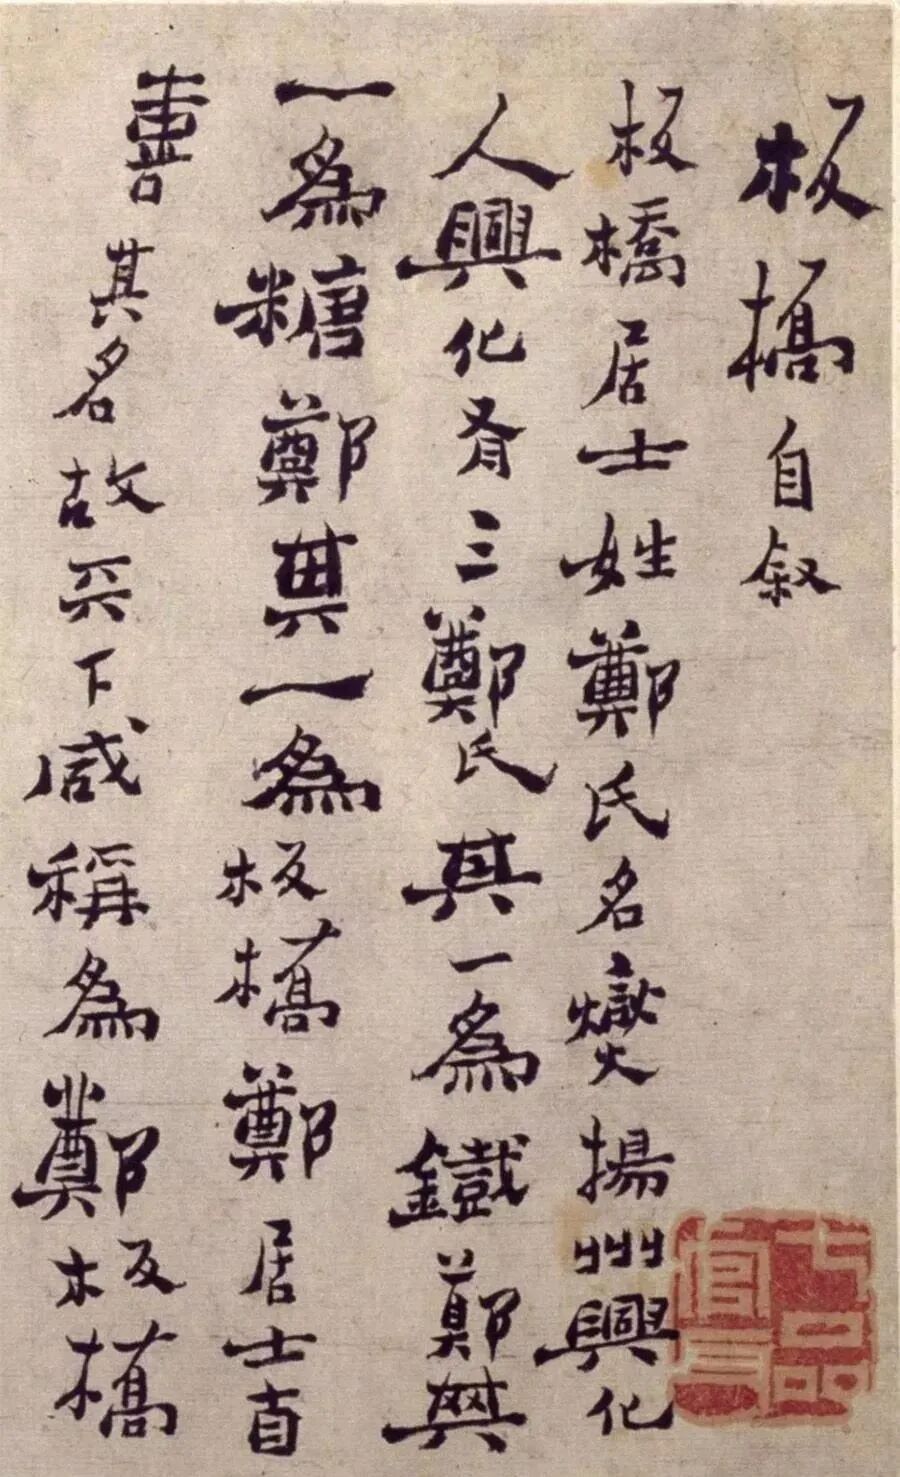 板橋自叙
板橋居士姓鄭氏名燮揚州興化
人興化有三鄭氏其一為鐵鄭其
一為糖鄭其一為板橋鄭居士自
喜其名故天下咸稱為鄭板橋
七品
官耳